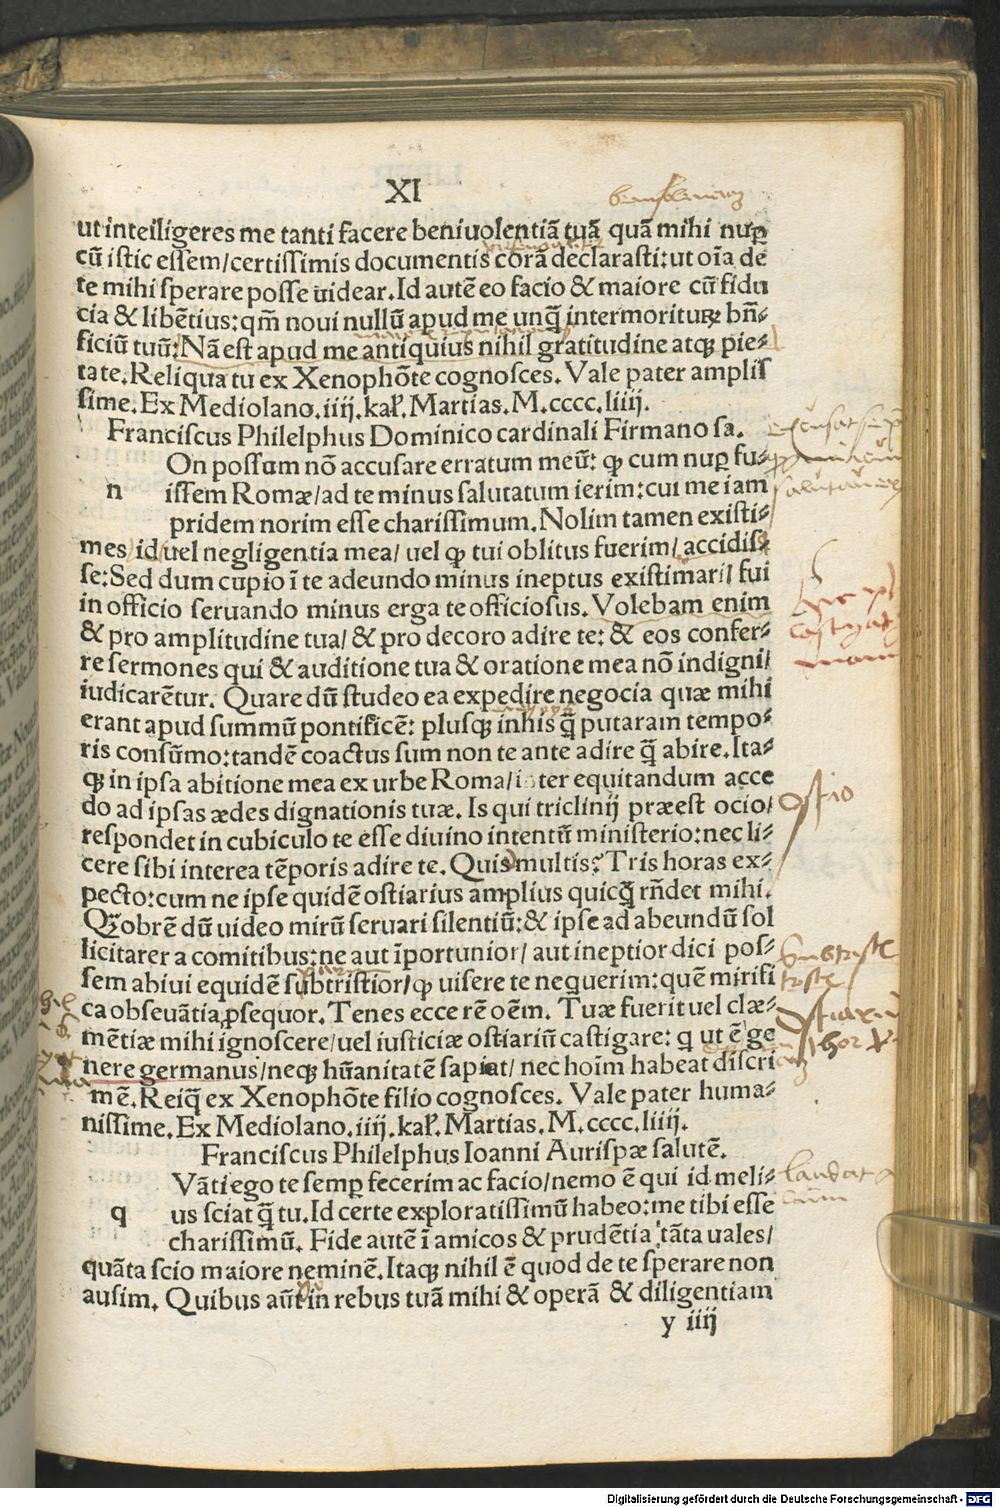 XI
ut inteiligeres me tanti facere beniuolentiā tuā quā mihi nuꝑ
cū istic essem/certissimis documentis corā declarasti:ut oīa de
te mihi sperare posse uidear.Id autē eo facio & maiore cū fidu
cia & libētius:qm̄ noui nullū apud me unq̄ intermoriturꝝ bn̄⸗
ficiū tuū:Nā est apud me antiquius nihil gratitudine atqꝫ pie⸗
tate.Reliqua tu ex Xenophōte cognosces.Vale pater ampliss
sime.Ex Mediolano.iiij.kal̄.Martias.M.cccc.liiij.
Franciscus Philelphus Dominico cardinali Firmano sa.
On possum nō accusare erratum meū: ꝙ cum nuꝑ fu⸗
n issem Romæ/ad te minus salutatum ierim:cui me iam
pridem norim esse charissimum.Nolim tamen existi⸗
mes id/uel negligentia mea/ uel ꝙ tui oblitus fuerim/ accidis⸗
se:Sed dum cupio ī te adeundo minus ineptus existimari/ fui
in officio seruando minus erga te officiosus.Volebam enim
& pro amplitudine tua/ & pro decoro adire te: & eos confer⸗
re sermones qui & auditione tua & oratione mea nō indigni/
iudicarētur. Quare dū studeo ea expedire negocia quæ mihi
erant apud summū pontificē: plusqꝫ inhis q̄ putaram tempo⸗
ris consūmo:tandē coactus sum non te ante adire q̄ abire.Ita⸗
qꝫ in ipsa abitione mea ex urbe Roma/i ter equitandum acce
do ad ipsas ædes dignationis tuæ. Is qui triclinij præest ocio/
respondet in cubiculo te esse diuino intentū ministerio:nec li⸗
cere sibi interea tēporis adire te.Quis multis? Tris horas ex⸗
pecto:cum ne ipse quidē ostiarius amplius quicq̄ rn̄det mihi.
Qꝫobrē dū uideo mirū seruari silentiū:& ipse ad abeundū sol
licitarer a comitibus:ne aut īportunior/ aut ineptior dici pos⸗
sem abiui equidē subtristior/ꝙ uisere te nequerim:quē mirifi
ca obseuātia ꝓsequor.Tenes ecce rē oēm. Tuæ fuerit uel clæ⸗
mētiæ mihi ignoscere/uel iusticiæ ostiariū castigare: q ut ē ge
nere germanus/neqꝫ hūanitatē sapiat/ nec hoīm habeat discri
mē.Reiq̄ ex Xenophōte filio cognosces.Vale pater huma⸗
nissime.Ex Mediolano.iiij.kal̄.Martias.M.cccc.liiij.
Franciscus Philelphus Ioanni Aurispæ salutē.
Vāti ego te semꝑ fecerim ac facio/nemo ē qui id meli⸗
q us sciat q̄ tu.Id certe exploratissimū habeo:me tibi esse
charissimū. Fide autē ī amicos & prudētia tāta uales/
quāta scio maiore neminē.Itaqꝫ nihil ē quod de te sperare non
ausim. Quibus aūt in rebus tuā mihi & operā & diligentiam
y iiij
ostio
Digitalisierung gefördert durch die Deutsche Forschungsgemeinschaft - DFG